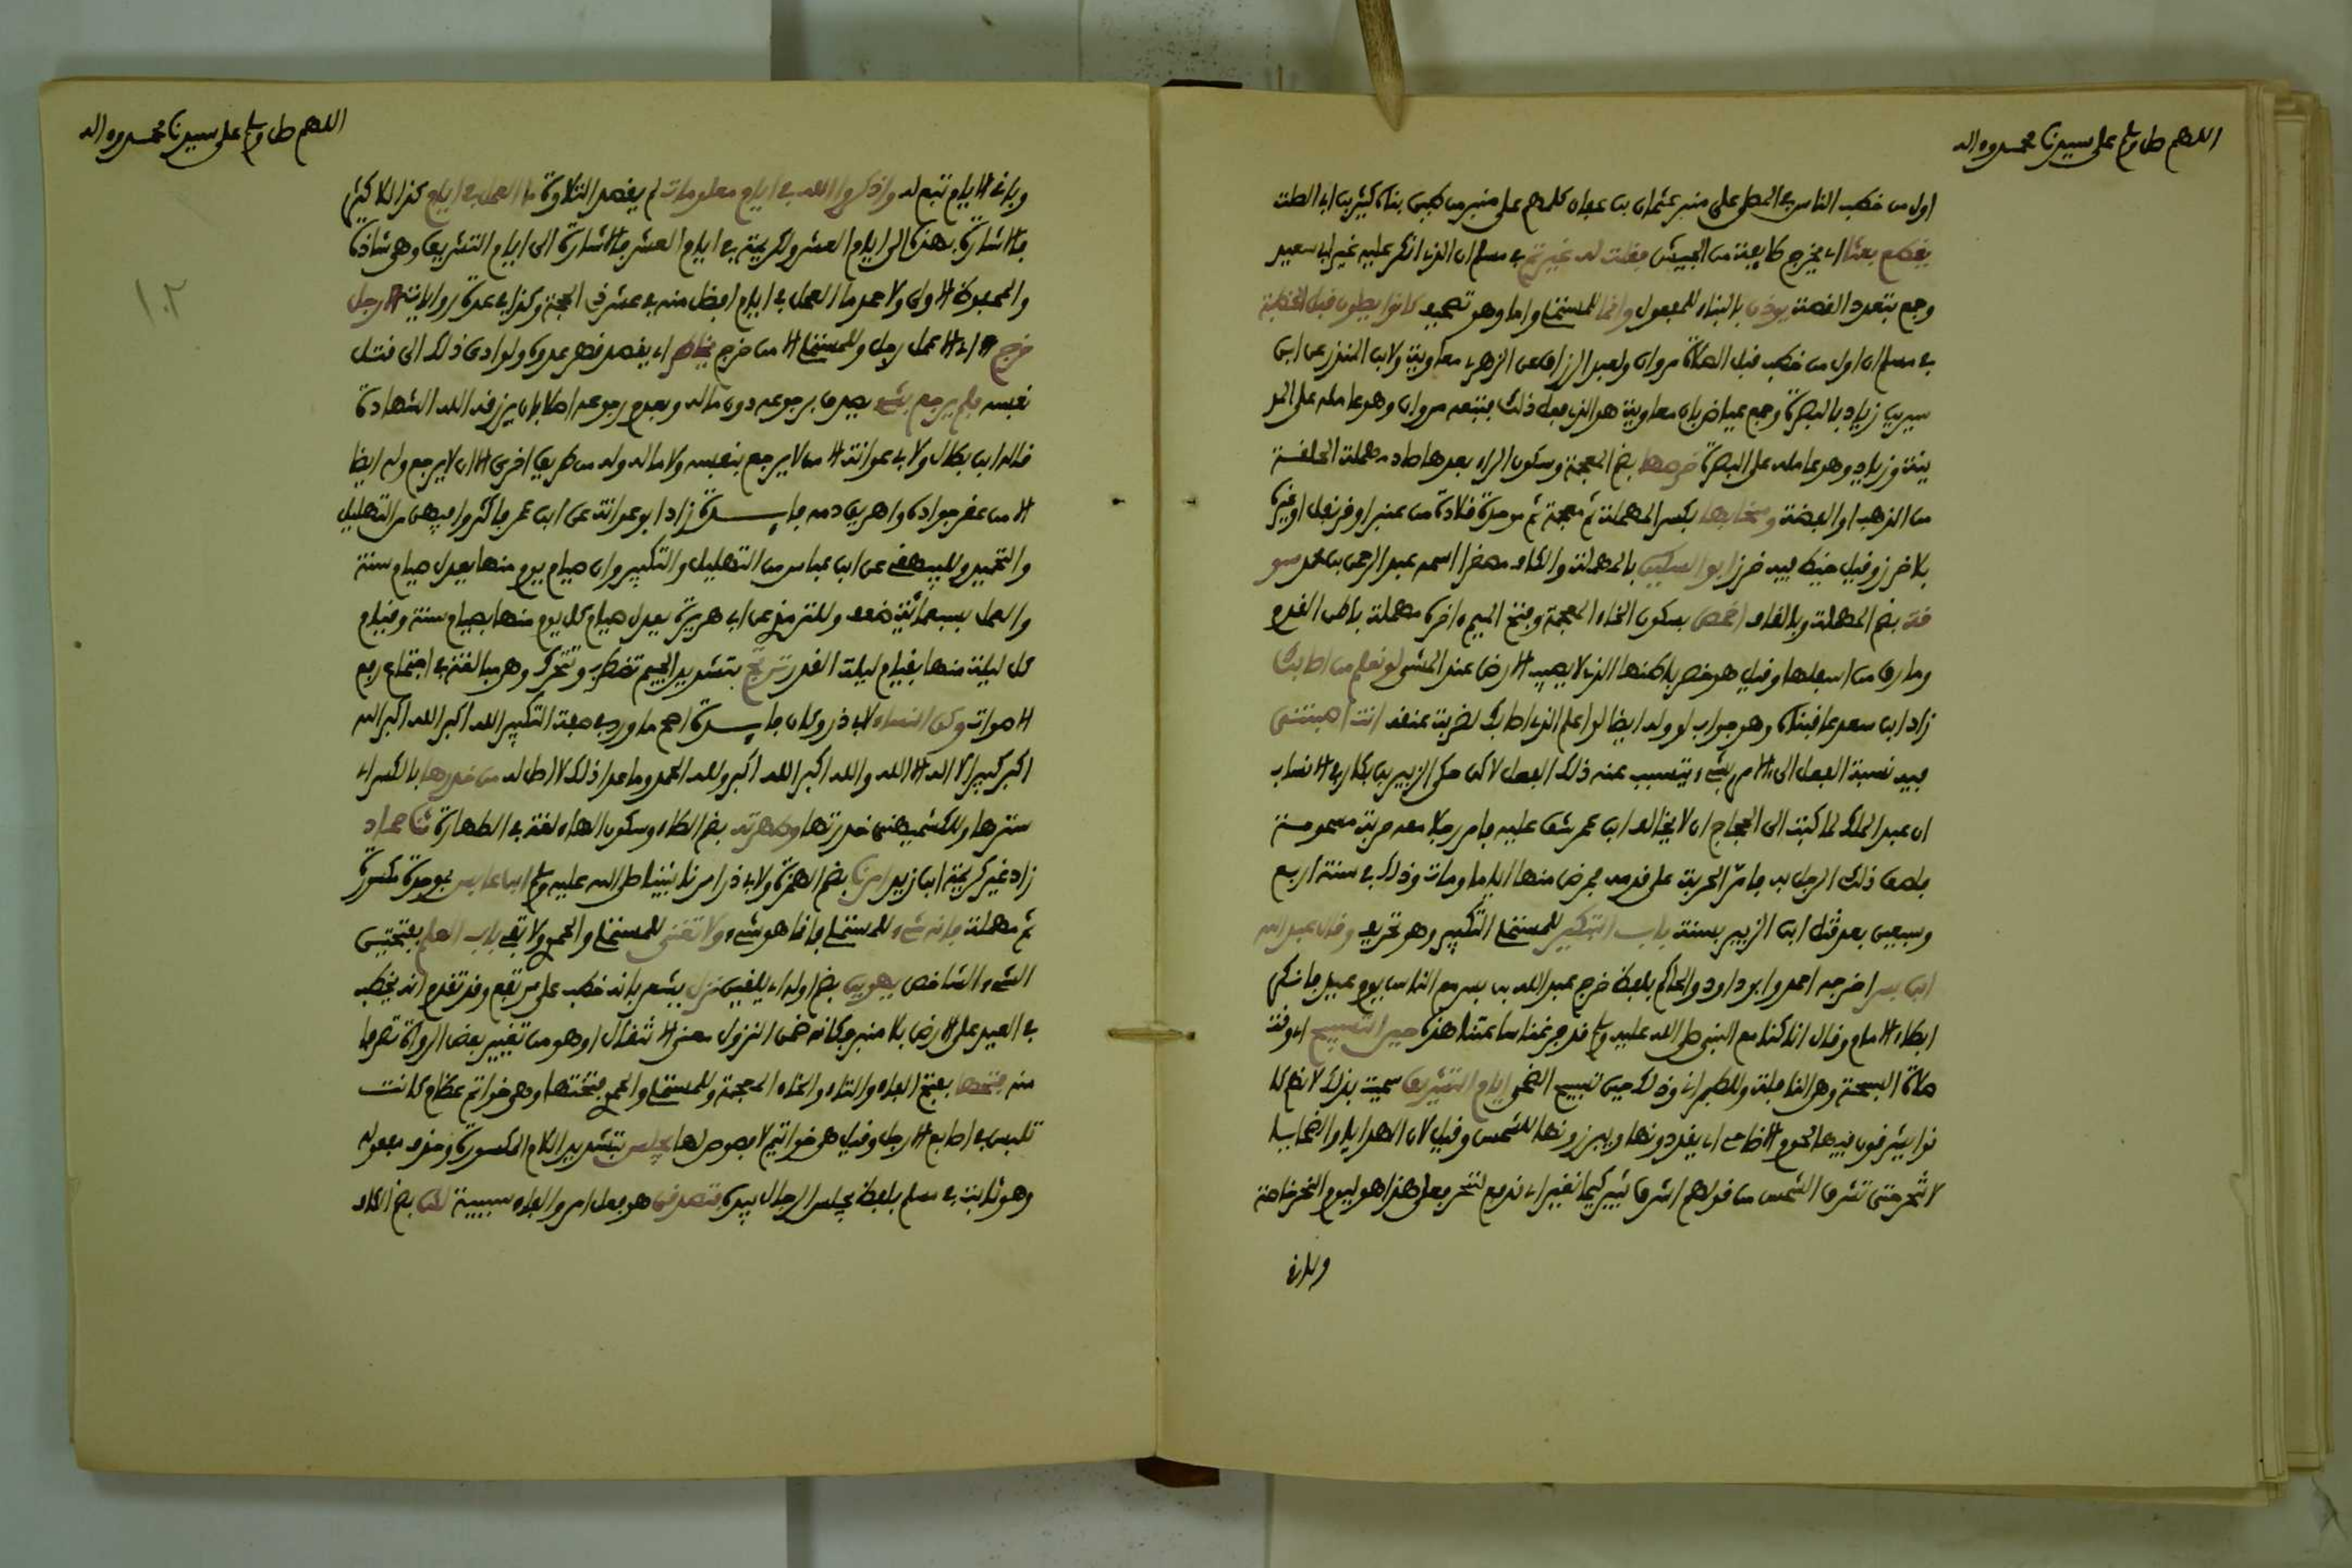 اللهم صل وسلم على سيدنا محمد وءاله
اول من خطب الناس في المصلى على منبر عثمان بن عفان كلمهم على منبر من طين بناه كثير بن ابي الصلت
يقطع بعثا اي يخرج طايفة من الجيش فقلت له غيرتم في مسلم ان الذي انكر عليه غير ابي سعيد
وجمع بتعدد القصة يوذن بالبناء للمفعول وانما للمستملي واما وهو تصحيف كانوا يصلون قبل الخطبة
في مسلم ان اول من خطب قبل الصلاة مروان ولعبد الرزاق عن الزهري معاوية ولابن المنذر عن ابن
سيرين زياد بالبصرة وجمع عياض بان معاوية هو الذي فعل ذلك فتبعه مروان وهو عامله على المد
ينة وزياد وهو عامله على البصرة خرصها بضم المعجمة وسكون الراء بعدها صاد مهملة الحلقة
من الذهب او الفضة وسخابها بكسر المهملة ثم معجمة ثم موحدة قلادة من عنبر او قرنفل او غيره
بلا خرز وقيل خيط فيه خرز ابو السكين بالمهملة والكاف مصغرا اسمه عبد الرحمن بن محمد سو
قة بضم المهملة وبالقاف اخمص بسكون الخاء المعجمة وفتح الميم ءاخره مهملة باطن القدم
وما رق من اسفلها وقيل هو خصر باطنها الذي لا يصيب الارض عند المشي لو نعلم من اصابك
زاد ابن سعد عاقبناه وهو جواب لو وله ايضا لو اعلم الذي اصابك لضربت عنقه انت اصبتني
فيه نسبة الفعل الى الامر بشيء يتسبب عنه ذلك الفعل لاكن حكى الزبير بن بكار في الانساب
ان عبد الملك لما كتب الى الحجاج ان لا يخالف ابن عمر شق عليه فامر رجلا معه حربة مسمومة
فلصق ذلك الرجل به فامر الحربة على قدمه فمرض منها اياما ومات وذلك في سنة اربع
وسبعين بعد قتل ابن الزبير بسنة باب التبكير للمستملي التكبير وهو تحريف وقال عبد الله
ابن بسر اخرجه احمد وابو داود والحاكم بلفظ خرج عبد الله بن بسر مع الناس يوم عيد فانكر
ابطاء الامام وقال انا كنا مع النبي صلى الله عليه وسلم قد فرغنا ساعتنا هذه حين التسبيح اي وقت
صلاة السبحة وهي النافلة وللطبراني وذلك حين تسبيح الضحى ايام التشريق سميت بذلك لانهم كا
نوا يشرقون فيها لحوم الاضاحي اي يقددونها ويبرزونها للشمس وقيل لان الهدايا والضحايا
لا تنحر حتى تشرق الشمس من قولهم اشرق ثبير كيما نغير اي ندفع لننحر فعلى هذا هو ليوم النحر خاصة
وباقي
اللهم صل وسلم على سيدنا محمد وءاله
١٠٢
وباقي الايام تبع له واذكروا الله في ايام معلومات لم يقصد التلاوة ما العمل في ايام كذا للاكثر
فالاشارة بهذه الى ايام العشر ولكريمة في ايام العشر فالاشارة الى ايام التشريق وهي شاذة
والمحفوظ الاولى ولاحمد ما العمل في ايام افضل منه في عشر ذي الحجة وكذا في عدة روايات الا رجل
خرج اي الا عمل رجل وللمستملي الا من خرج يخاطر اي يقصد قهر عدوه ولو ادى ذلك الى قتل
نفسه فلم يرجع بشيء يصدق برجوعه دون ماله وبعدم رجوعه اصلا بان يرزقه الله الشهادة
قاله ابن بطال ولابي عوانة الا من لا يرجع بنفسه ولا ماله وله من طريق اخرى الا ان لا يرجع وله ايضا
الا من عقر جواده واهريق دمه فايدة زاد ابو عوانة عن ابن عمر فاكثروا فيهن من التهليل
والتحميد وللبيهقي عن ابن عباس من التهليل والتكبير وان صيام يوم منها يعدل صيام سنة
والعمل بسبعمائة ضعف وللترمذي عن ابي هريرة يعدل صيام كل يوم منها بصيام سنة وقيام
كل ليلة منها بقيام ليلة القدر ترتج بتشديد الجيم تضطرب وتتحرك وهي مبالغة في اجتماع رفع
الاصوات وكن النساء لابي ذر وكان فايدة اصح ما ورد في صفة التكبير الله اكبر الله اكبر الله
اكبر كبيرا لا اله الا الله والله اكبر الله اكبر ولله الحمد وما عدا ذلك لا اصل له من خدرها بالكسر اي
سترها وللكشميهني خدرتها وطهرته بضم الطاء وسكون الهاء لغة في الطهارة ثنا حماد
زاد غير كريمة ابن زيد امرنا بضم الهمزة ولابي ذر امرنا نبينا صلى الله عليه وسلم ابن عابس بموحدة مكسورة
ثم مهملة فانه شيء للمستملي فانما هو شيء ولا تغني للمستملي والحموي ولا تفي باب العلم بفتحتين
الشيء الشاخص يهوين بضم اوله اي يلقين نزل يشعر بانه خطب على مرتفع وقد تقدم انه يخطب
في العيد على الارض بلا منبر فكانه ضمن النزول معنى الانتقال او هو من تغيير بعض الرواة تصرفا
منه فتخها بفتح الفاء والتاء والخاء المعجمة وللمستملي والحموي فتختها وهي خواتم عظام كانت
تلبس في اصابع الارجل وقيل هي خواتيم لا فصوص لها يجلس بتشديد اللام المكسورة وحذف مفعوله
وهو ثابت في مسلم بلفظ يجلس الرجال بيده فتصدقن هو فعل امر والفاء سببية لكن بضم الكاف